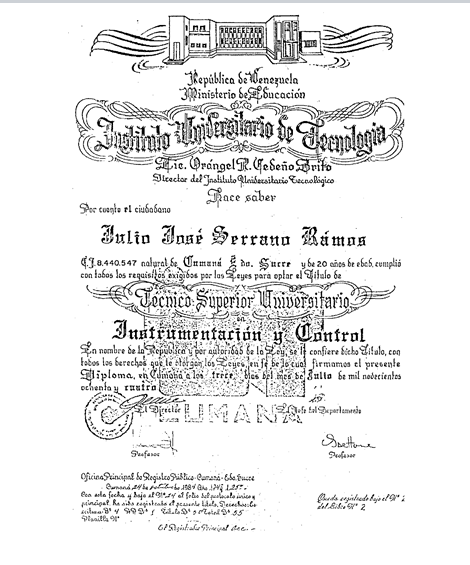 República de Venezuela
Ministerio de Educación
Instituto Universitario de Tecnología
Lic. Orángel R. Cedeño Brito
Director del Instituto Universitario Tecnológico
Hace saber
Por cuanto el ciudadano
Julio José Serrano Rámos
C.I. 8.440.547 natural de Cumaná Edo. Sucre y de 20 años de edad, cumplió
con todos los requisitos exigidos por las Leyes para optar el Título de
Tecnico Superior Universitario
en
Instrumentación y Control
En nombre de la República y por autoridad de la Ley, se le confiere dicho Título, con
todos los derechos que le otorgan las Leyes, en fe de lo cual firmamos el presente
Diploma, en Cumaná a los trece días del mes de Julio de mil novecientos
ochenta y cuatro
El Director
Jefe del Departamento
CUMANA
Profesor
Profesor
Oficina Principal de Registro Público. Cumaná. Edo. Sucre
Cumaná 24 de
Con esta fecha y bajo el Nº 24 al folio del protocolo único y
principal ha sido registrado el presente título. Derechos: Es-
critura Bs 4
Planilla Nº
El Registrador Principal
Queda registrado bajo el Nº
del Libro Nº 2